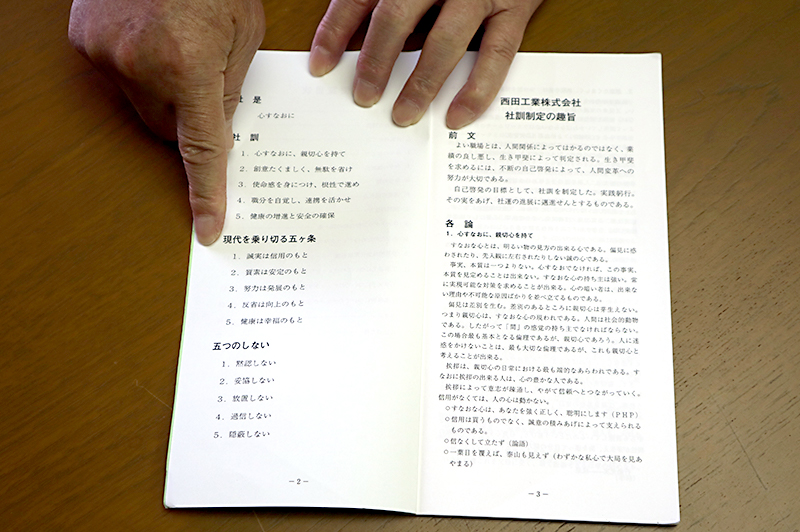 社 是
心すなおに
社 訓
1. 心すなおに、親切心を持て
2. 創意たくましく、無駄を省け
3. 使命感を身につけ、根性で進め
4. 職分を自覚し、連携を活かせ
5. 健康の増進と安全の確保
現代を乗り切る五ヶ条
1. 誠実は信用のもと
2. 質素は安定のもと
3. 努力は発展のもと
4. 反省は向上のもと
5. 健康は幸福のもと
五つのしない
1. 黙認しない
2. 妥協しない
3. 放置しない
4. 過信しない
5. 隠蔽しない
－2－
西田工業株式会社
社訓制定の趣旨
前 文
よい職場とは、人間関係によってはかるのではなく、業
績の良し悪し、生き甲斐によって判定される。生き甲斐
を求めるには、不断の自己啓発によって、人間変革への
努力が大切である。
自己啓発の目標として、社訓を制定した。実践躬行。
その実をあげ、社運の進展に邁進せんとするものである。
各 論
1. 心すなおに、親切心を持て
すなおな心とは、明るい物の見方の出来る心である。偏見に惑
わされたり、先入観に左右されたりしない誠の心である。
事実、本質は一つよりない。心すなおでなければ、この事実、
本質を見定めることは出来ない。すなおな心の持ち主は強い。常
に実現可能な対策を求めることが出来る。心の暗い者は、出来な
い理由や不可能な原因ばかりを並べ立てるものである。
偏見は差別を生む。差別のあるところに親切心は芽生えない。
つまり親切心は、すなおな心の現われである。人間は社会的動物
である。したがって「間」の感覚の持ち主でなければならない。
この場合最も基本となる倫理であるが、親切心であろう。人に迷
惑をかけないことは、最も大切な倫理であるが、これも親切心と
考えることが出来る。
挨拶は、親切心の日常における最も端的なあらわれである。す
なおに挨拶の出来る人は、心の豊かな人である。
挨拶によって意志が疎通し、やがて信頼へとつながっていく。
信用がなくては、人の心は動かない。
○すなおな心は、あなたを強く正しく、聡明にします（PHP）
○信用は買うものでなく、誠意の積みあげによって支えられる
ものである。
○信なくして立たず（論語）
○一葉目を覆えば、泰山も見えず（わずかな私心で大局を見あ
やまる）
－3－